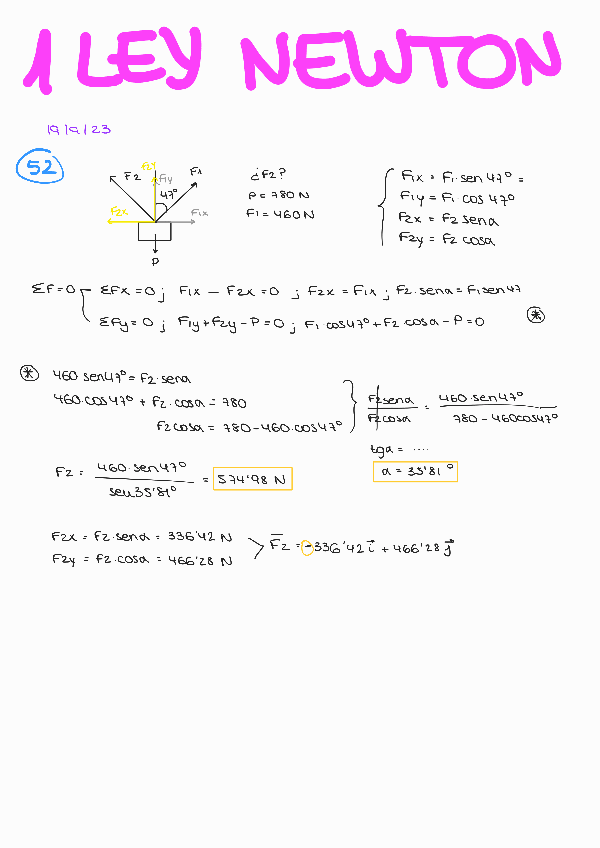 1 LEY NEWTON
19/9/23
52
F2 F2y F1y F1
47º
F2x F1x
P
¿F2?
P = 780 N
F1 = 460 N
F1x = F1 · sen 47º =
F1y = F1 cos 47º
F2x = F2 sena
F2y = F2 cosa
ΣF=0 ΣFx = 0 ; F1x - F2x = 0 ; F2x = F1x ; F2 · sena = F1 sen 47
ΣFy = 0 ; F1y + F2y - P = 0 ; F1 · cos47º + F2 cosa - P = 0 *
* 460 · sen47º = F2 · sena
460 · cos47º + F2 · cosa = 780
F2cosa = 780 - 460 · cos47º
F2sena / F2cosa = 460 · sen47º / 780 - 460cos47º
tga = ....
a = 35'81º
F2 = 460 · sen47º / sen35'81º = 574'98 N
F2x = F2 · sena = 336'42 N
F2y = F2 · cosa = 466'28 N
F2 = -336'42 i + 466'28 j